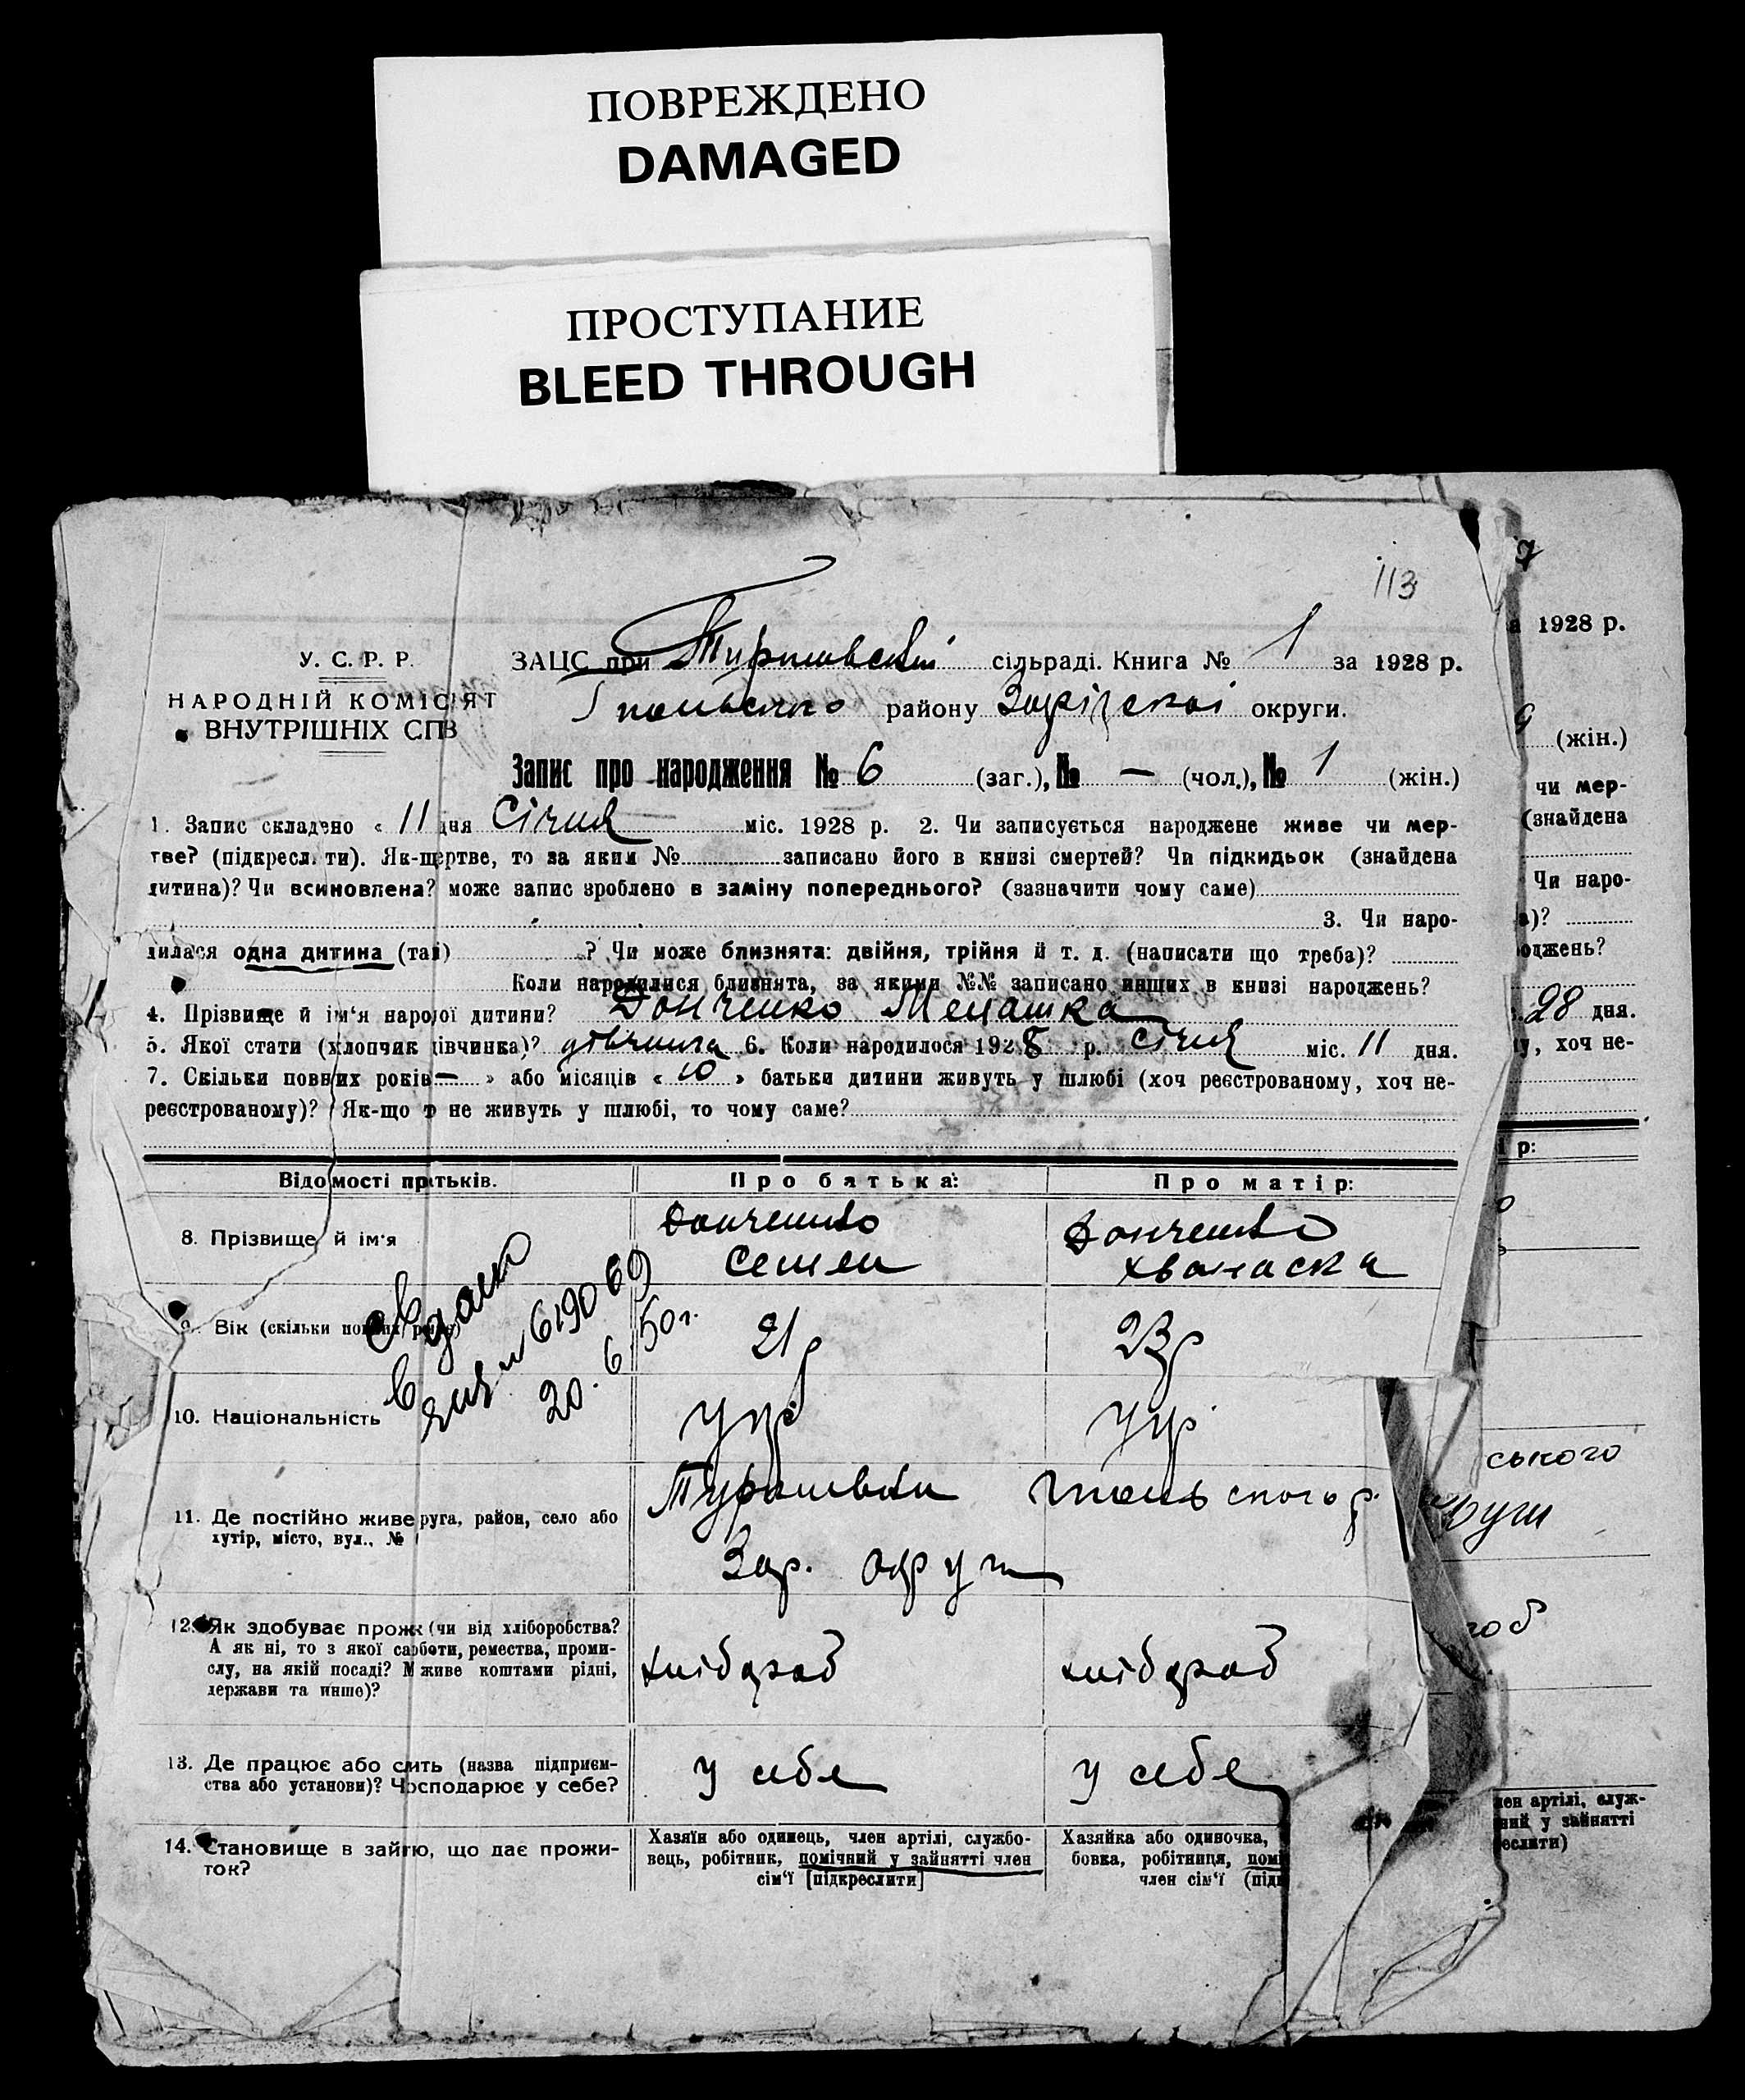 ПОВРЕЖДЕНО
DAMAGED
ПРОСТУПАНИЕ
BLEED THROUGH
113
У. С. Р. Р.
НАРОДНІЙ КОМІС'ЯТ
ВНУТРІШНІХ СПВ
ЗАЦС при сільраді. Книга № 1 за 1928 р.
району округи.
Запис про народження № 6 (заг.), № — (чол.), № 1 (жін.)
1. Запис складено « 11 дня Січня міс. 1928 р. 2. Чи записується народжене живе чи мер-
тве? (підкресл ти). Як-що мертве, то за яким № записано його в книзі смертей? Чи підкидьок (знайдена
дитина)? Чи всиновлена? може запис зроблено в заміну попереднього? (зазначити чому саме)
3. Чи наро-
дилася одна дитина (так) ? Чи може близнята: двійня, трійня й т. д. (написати що треба)?
Коли народилися близнята, за якими №№ записано инших в книзі народжень?
4. Прізвище й ім'я народ ої дитини? Донченко Мелашка
5. Якої стати (хлопчик дівчинка)? дівчинка 6. Коли народилося 1928 р. січня міс. 11 дня.
7. Скільки повних років — » або місяців « 10 » батьки дитини живуть у шлюбі (хоч реєстрованому, хоч не-
реєстрованому)? Як-що т не живуть у шлюбі, то чому саме?
Відомості пр тьків. Про батька: Про матір:
8. Прізвище й ім'я Донченко Семен Донченко Хванаска
9. Вік (скільки повних років) 21 р 23 р
10. Національність укр укр
11. Де постійно живе руга, район, село або
хутір, місто, вул., №
Зап. округи
12. Як здобуває прож (чи від хліборобства?
А як ні, то з якої са роботи, ремества, проми-
слу, на якій посаді? М живе коштами рідні,
держави та инше)?
хлібороб хлібороб
13. Де працює або с ить (назва підприєм-
ства або установи)? Ч господарює у себе?
у себе у себе
14. Становище в зай ю, що дає прожи-
ток?
Хазяїн або одинець, член артілі, службо-
вець, робітник, помічний у зайнятті член
сім'ї [підкреслити]
Хазяйка або одиночка,
бовка, робітниця, пом
член сім'ї (підк
20. 6. 50 г.
1928 р.
9 (жін.)
чи мер-
(знайдена
Чи наро-
)?
оджень?
28 дня.
у, хоч не-
і р:
ського
лен артілі, служ-
ний у зайнятті
еслити)